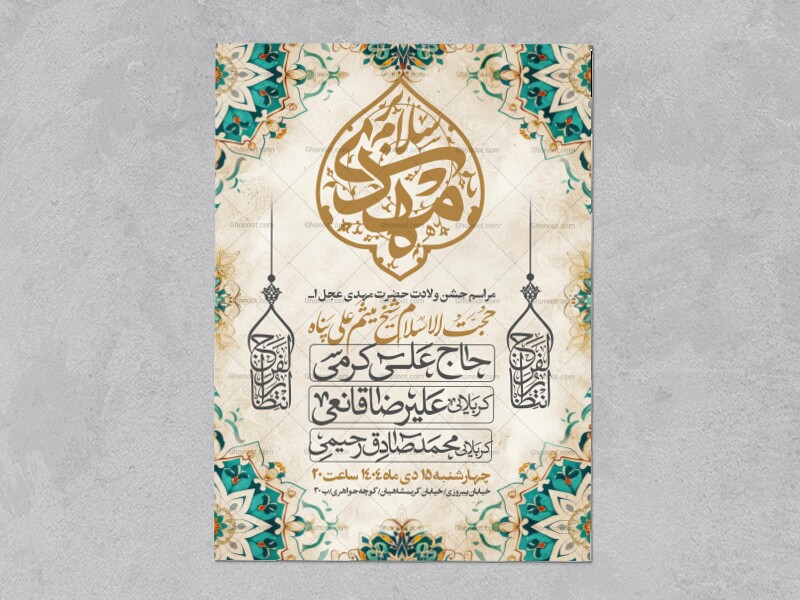 سلام مهدی
مراسم جشن ولادت حضرت مهدی عجل ا...
حجت الاسلام شیخ میثم علی پناه
حاج علی کرمی
کربلائی علیرضا قانعی
کربلائی محمدصادق رحیمی
چهارشنبه ۱۵ دی ماه ۱۴۰۴ ساعت ۲۰
خیابان پیروزی/خیابان کریمشاهیان/کوچه جواهری/پ ۳۰
انتظار الفرج
انتظار الفرج
Ghonoot.com